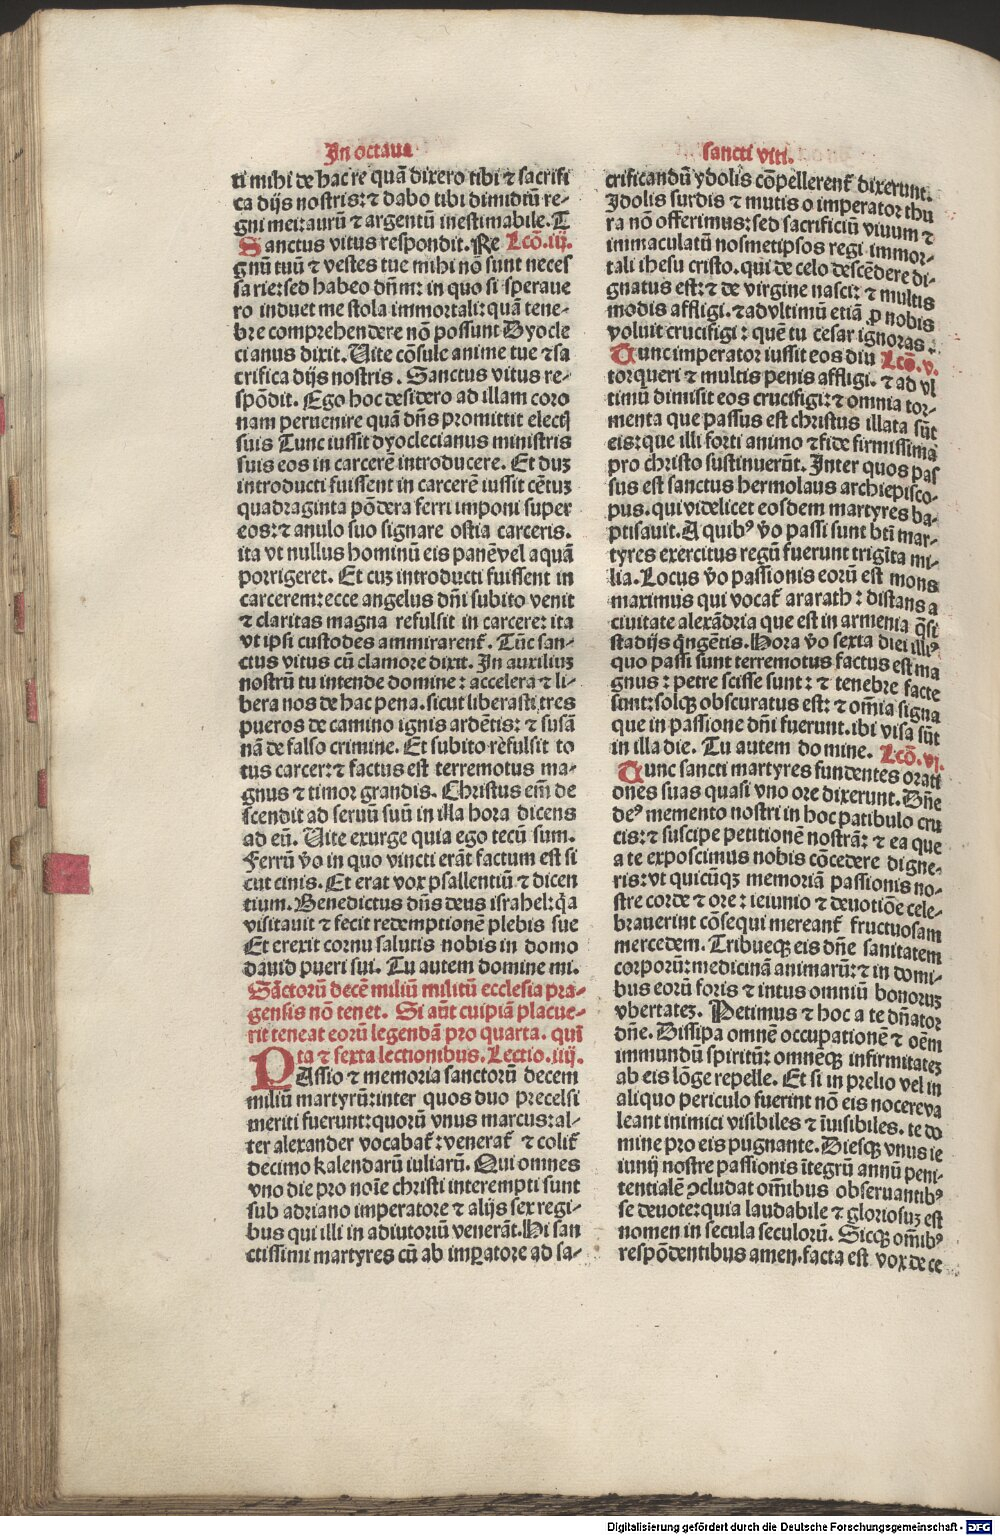 In octaua
ti mihi de hac re quā dixero tibi ⁊ sacrifi
ca dijs nostris: ⁊ dabo tibi dimidiū re-
gni mei: aurū ⁊ argentū inestimabile. T
Sanctus vitus respondit. Re Lcō. iij.
gnū tuū ⁊ vestes tue mihi nō sunt neces
sarie: sed habeo dn̄m: in quo si speraue
ro induet me stola immortali: quā tene-
bre comprehendere nō possunt Dyocle
cianus dixit. Uite cōsule anime tue ⁊ sa
crifica dijs nostris. Sanctus vitus re-
spōdit. Ego hoc desidero ad illam coro
nam peruenire quā dn̄s promittit electꝭ
suis Tunc iussit dyoclecianus ministris
suis eos in carcerē introducere. Et duꝫ
introducti fuissent in carcerē iussit cētuꝫ
quadraginta pōdera ferri imponi super
eos: ⁊ anulo suo signare ostia carceris.
ita vt nullus hominū eis panē vel aquā
porrigeret. Et cuꝫ introducti fuissent in
carcerem: ecce angelus dn̄i subito venit
⁊ claritas magna refulsit in carcere: ita
vt ipsi custodes ammirarent̄. Tūc san-
ctus vitus cū clamore dixit. In auxiliuꝫ
nostrū tu intende domine: accelera ⁊ li-
bera nos de hac pena. sicut liberasti tres
pueros de camino ignis ardētis: ⁊ susā
nā de falso crimine. Et subito refulsit to
tus carcer: ⁊ factus est terremotus ma-
gnus ⁊ timor grandis. Christus em̄ de
scendit ad seruū suū in illa hora dicens
ad eū. Uite exurge quia ego tecū sum.
Ferrū v̄o in quo vincti erāt factum est si
cut cinis. Et erat vox psallentiū ⁊ dicen
tium. Benedictus dn̄s deus israhel: q̄a
visitauit ⁊ fecit redemptionē plebis sue
Et erexit cornu salutis nobis in domo
dauid pueri sui. Tu autem domine mi.
Sāctorū decē miliū militū ecclesia pra-
gensis nō tenet. Si aūt cuipiā placue-
rit teneat eorū legendā pro quarta. quī
ta ⁊ sexta lectionibus. Lectio. iiij.
PAssio ⁊ memoria sanctorū decem
miliū martyrū: inter quos duo precelsi
meriti fuerunt: quorū vnus marcus: al-
ter alexander vocabat̄: venerat̄ ⁊ colit̄
decimo kalendarū iuliarū. Qui omnes
vno die pro noīe christi interempti sunt
sub adriano imperatore ⁊ alijs sex regi-
bus qui illi in adiutoriū venerāt. Hi san
ctissimi martyres cū ab imꝑatore ad sa-
sancti viti.
crificandū ydolis cōpellerent̄ dixerunt.
Idolis surdis ⁊ mutis o imperator thu
ra nō offerimus: sed sacrificiū viuum ⁊
immaculatū nosmetipsos regi immor-
tali ihesu cristo. qui de celo descēdere di-
gnatus est: ⁊ de virgine nasci: ⁊ multis
modis affligi. ⁊ ad vltimū etiā ꝓ nobis
voluit crucifigi: quē tu cesar ignoras.
Tunc imperator iussit eos diu Lcō. v.
torqueri ⁊ multis penis affligi. ⁊ ad vl
timū dimisit eos crucifigi: ⁊ omnia tor-
menta que passus est christus illata sūt
eis: que illi forti animo ⁊ fide firmissima
pro christo sustinuerūt. Inter quos pas
sus est sanctus hermolaus archiepisco-
pus. qui videlicet eosdem martyres ba-
ptisauit. A quibꝰ v̄o passi sunt btī mar-
tyres exercitus regū fuerunt trigīta mi-
lia. Locus v̄o passionis eorū est mons
maximus qui vocat̄ ararath: distans a
ciuitate alexādria que est in armenia q̄si
stadijs q̄ngētis. Hora v̄o sexta diei illiꝰ
quo passi sunt terremotus factus est ma
gnus: petre scisse sunt: ⁊ tenebre facte
sunt: solqꝫ obscuratus est: ⁊ om̄ia signa
que in passione dn̄i fuerunt. ibi visa sūt
in illa die. Tu autem domine. Lcō. vi.
Tunc sancti martyres fundentes orati
ones suas quasi vno ore dixerunt. Dn̄e
deꝰ memento nostri in hoc patibulo cru
cis: ⁊ suscipe petitionē nostrā: ⁊ ea que
a te exposcimus nobis cōcedere digne-
ris: vt quicūqꝫ memoriā passionis no-
stre corde ⁊ ore: ieiunio ⁊ deuotiōe cele-
brauerint cōsequi mereant̄ fructuosam
mercedem. Tribueqꝫ eis dn̄e sanitatem
corporū: medicinā animarū: ⁊ in domi-
bus eorū foris ⁊ intus omniū bonoruꝫ
vbertateꝫ. Petimus ⁊ hoc a te dn̄ator
dn̄e. Dissipa omnē occupationē ⁊ oēm
immundū spiritū: omnēqꝫ infirmitateꝫ
ab eis lōge repelle. Et si in prelio vel in
aliquo periculo fuerint nō eis nocere va
leant inimici visibiles ⁊ īuisibiles. te do
mine pro eis pugnante. Diesqꝫ vnus ie
iunij nostre passionis ītegrū annū peni-
tentialē ꝯcludat om̄ibus obseruantibꝰ
se deuote: quia laudabile ⁊ gloriosuꝫ est
nomen in secula seculorū. Sicqꝫ om̄ibꝰ
respōdentibus amen. facta est vox de ce
Digitalisierung gefördert durch die Deutsche Forschungsgemeinschaft - DFG